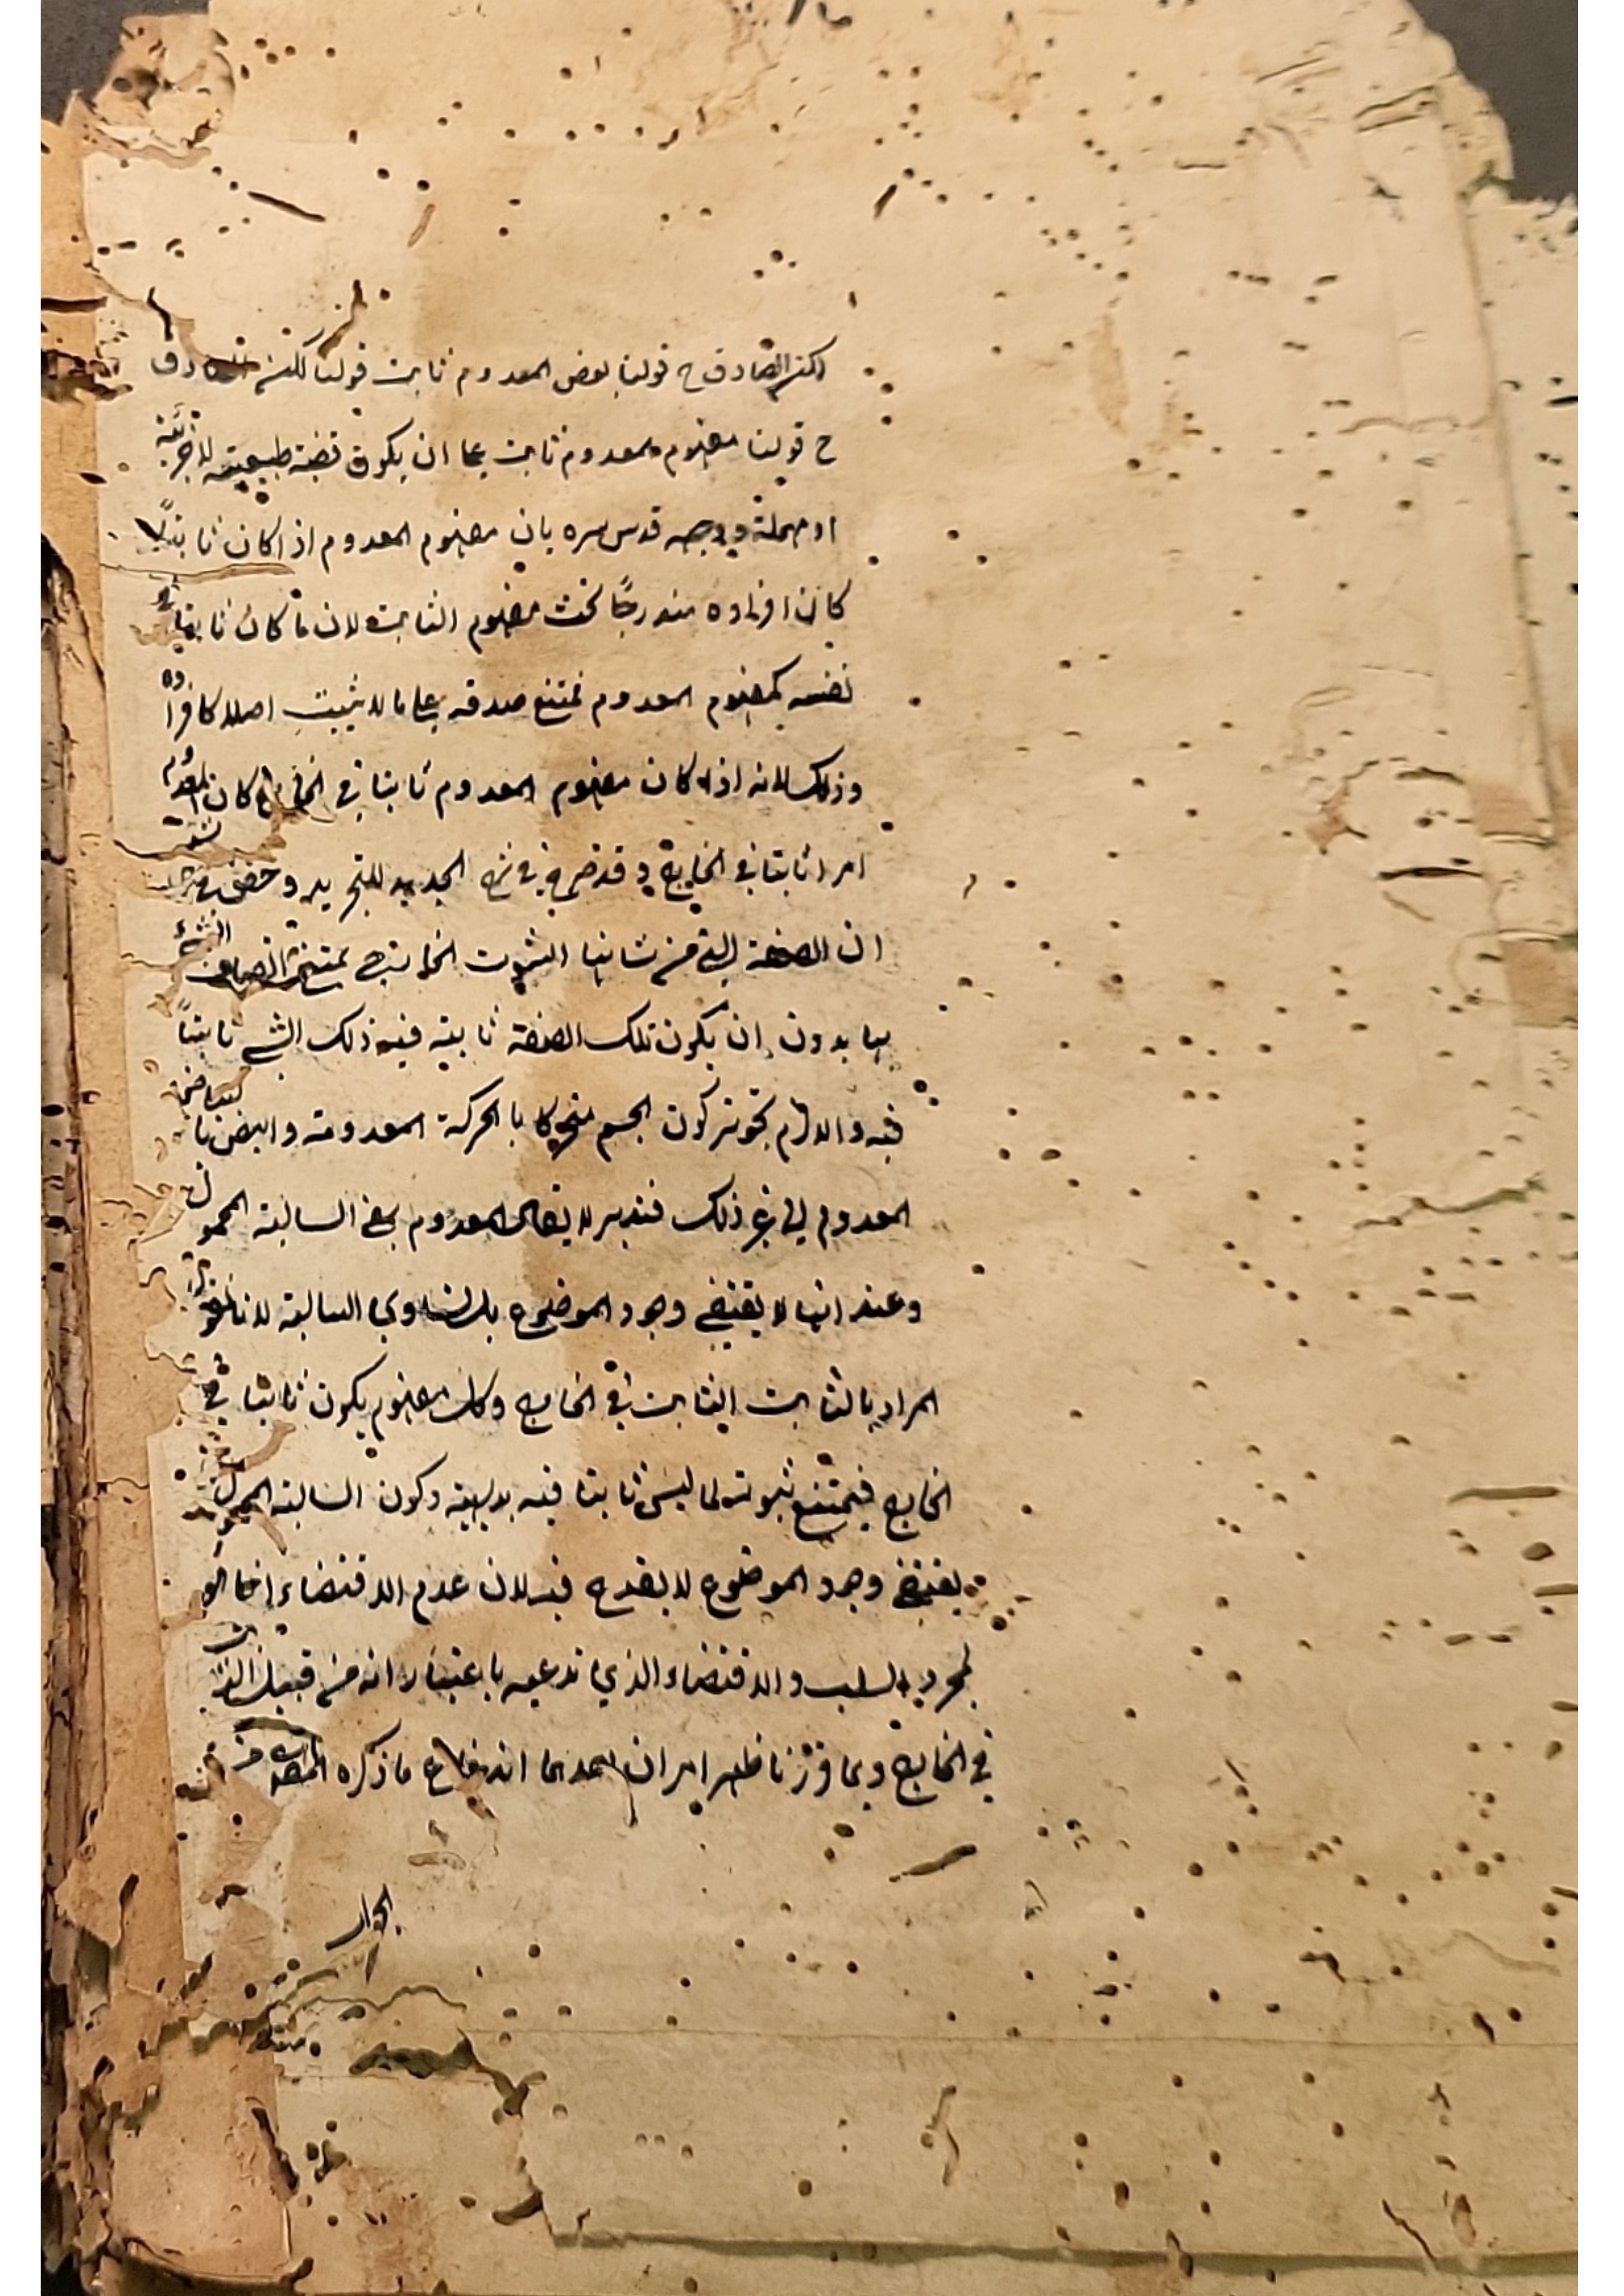 لكنه الصادق ح قولنا بعض المعدوم ثابت قولنا لكنه الصادق
ح قولنا مفهوم المعدوم ثابت على ان يكون قضية طبيعية لا جزئية
او مهملة ووجهه قدس سره بان مفهوم المعدوم اذا كان ثابتا
كان افراده مندرجًا تحت مفهوم الثابت لان ما كان ثابتا
نفسه كمفهوم المعدوم يمتنع صدقه على ما لا يثبت اصلا كافراده
وذلك لانه اذا كان مفهوم المعدوم ثابتا في الخارج كان المعدوم
امرا ثابتا في الخارج وقد صرح في شرح الجديد للتجريد
ان الصفة التي من شانها الثبوت الخارجي يمتنع اتصاف الشيء
بها بدون ان يكون تلك الصفة ثابتة فيه ذلك الشي ثابتاً
فيه والا لزم تجويز كون الجسم متحركا با الحركة المعدومة وابيض با
المعدوم الى غير ذلك فتدبر لا يقال المعدوم بمعنى السالبة المحمول
وعند انها لا يقتضي وجود الموضوع بل تساوي السالبة لانا نقول
المراد بالثابت الثابت في الخارج وكل مفهوم يكون ثابتا في
الخارج فيمتنع ثبوته لما ليس ثابتا فيه بديهية وكون السالبة المحمول
يقتضي وجود الموضوع لا يقدح فيه لان عدم الاقتضاء انما هو
لمجرد السلب والاقتضاء الذي ندعيه باعتبار انه من قبيل الثابت
في الخارج وبما قررنا ظهر امران احدهما اندفاع ما ذكره المص من
الجواب